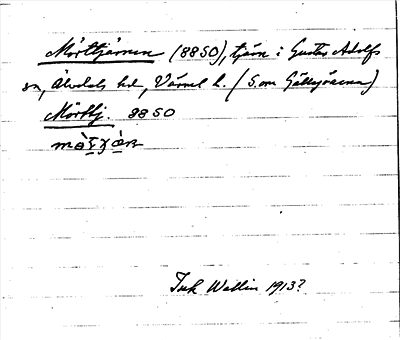 Mörttjärnen (8850), tjärn i Gustav Adolfs
sn, Älvdals hd, Värml. l. (S.om Gällsjöarna)
Mörttj. 8850
Ink Wallin 1913?